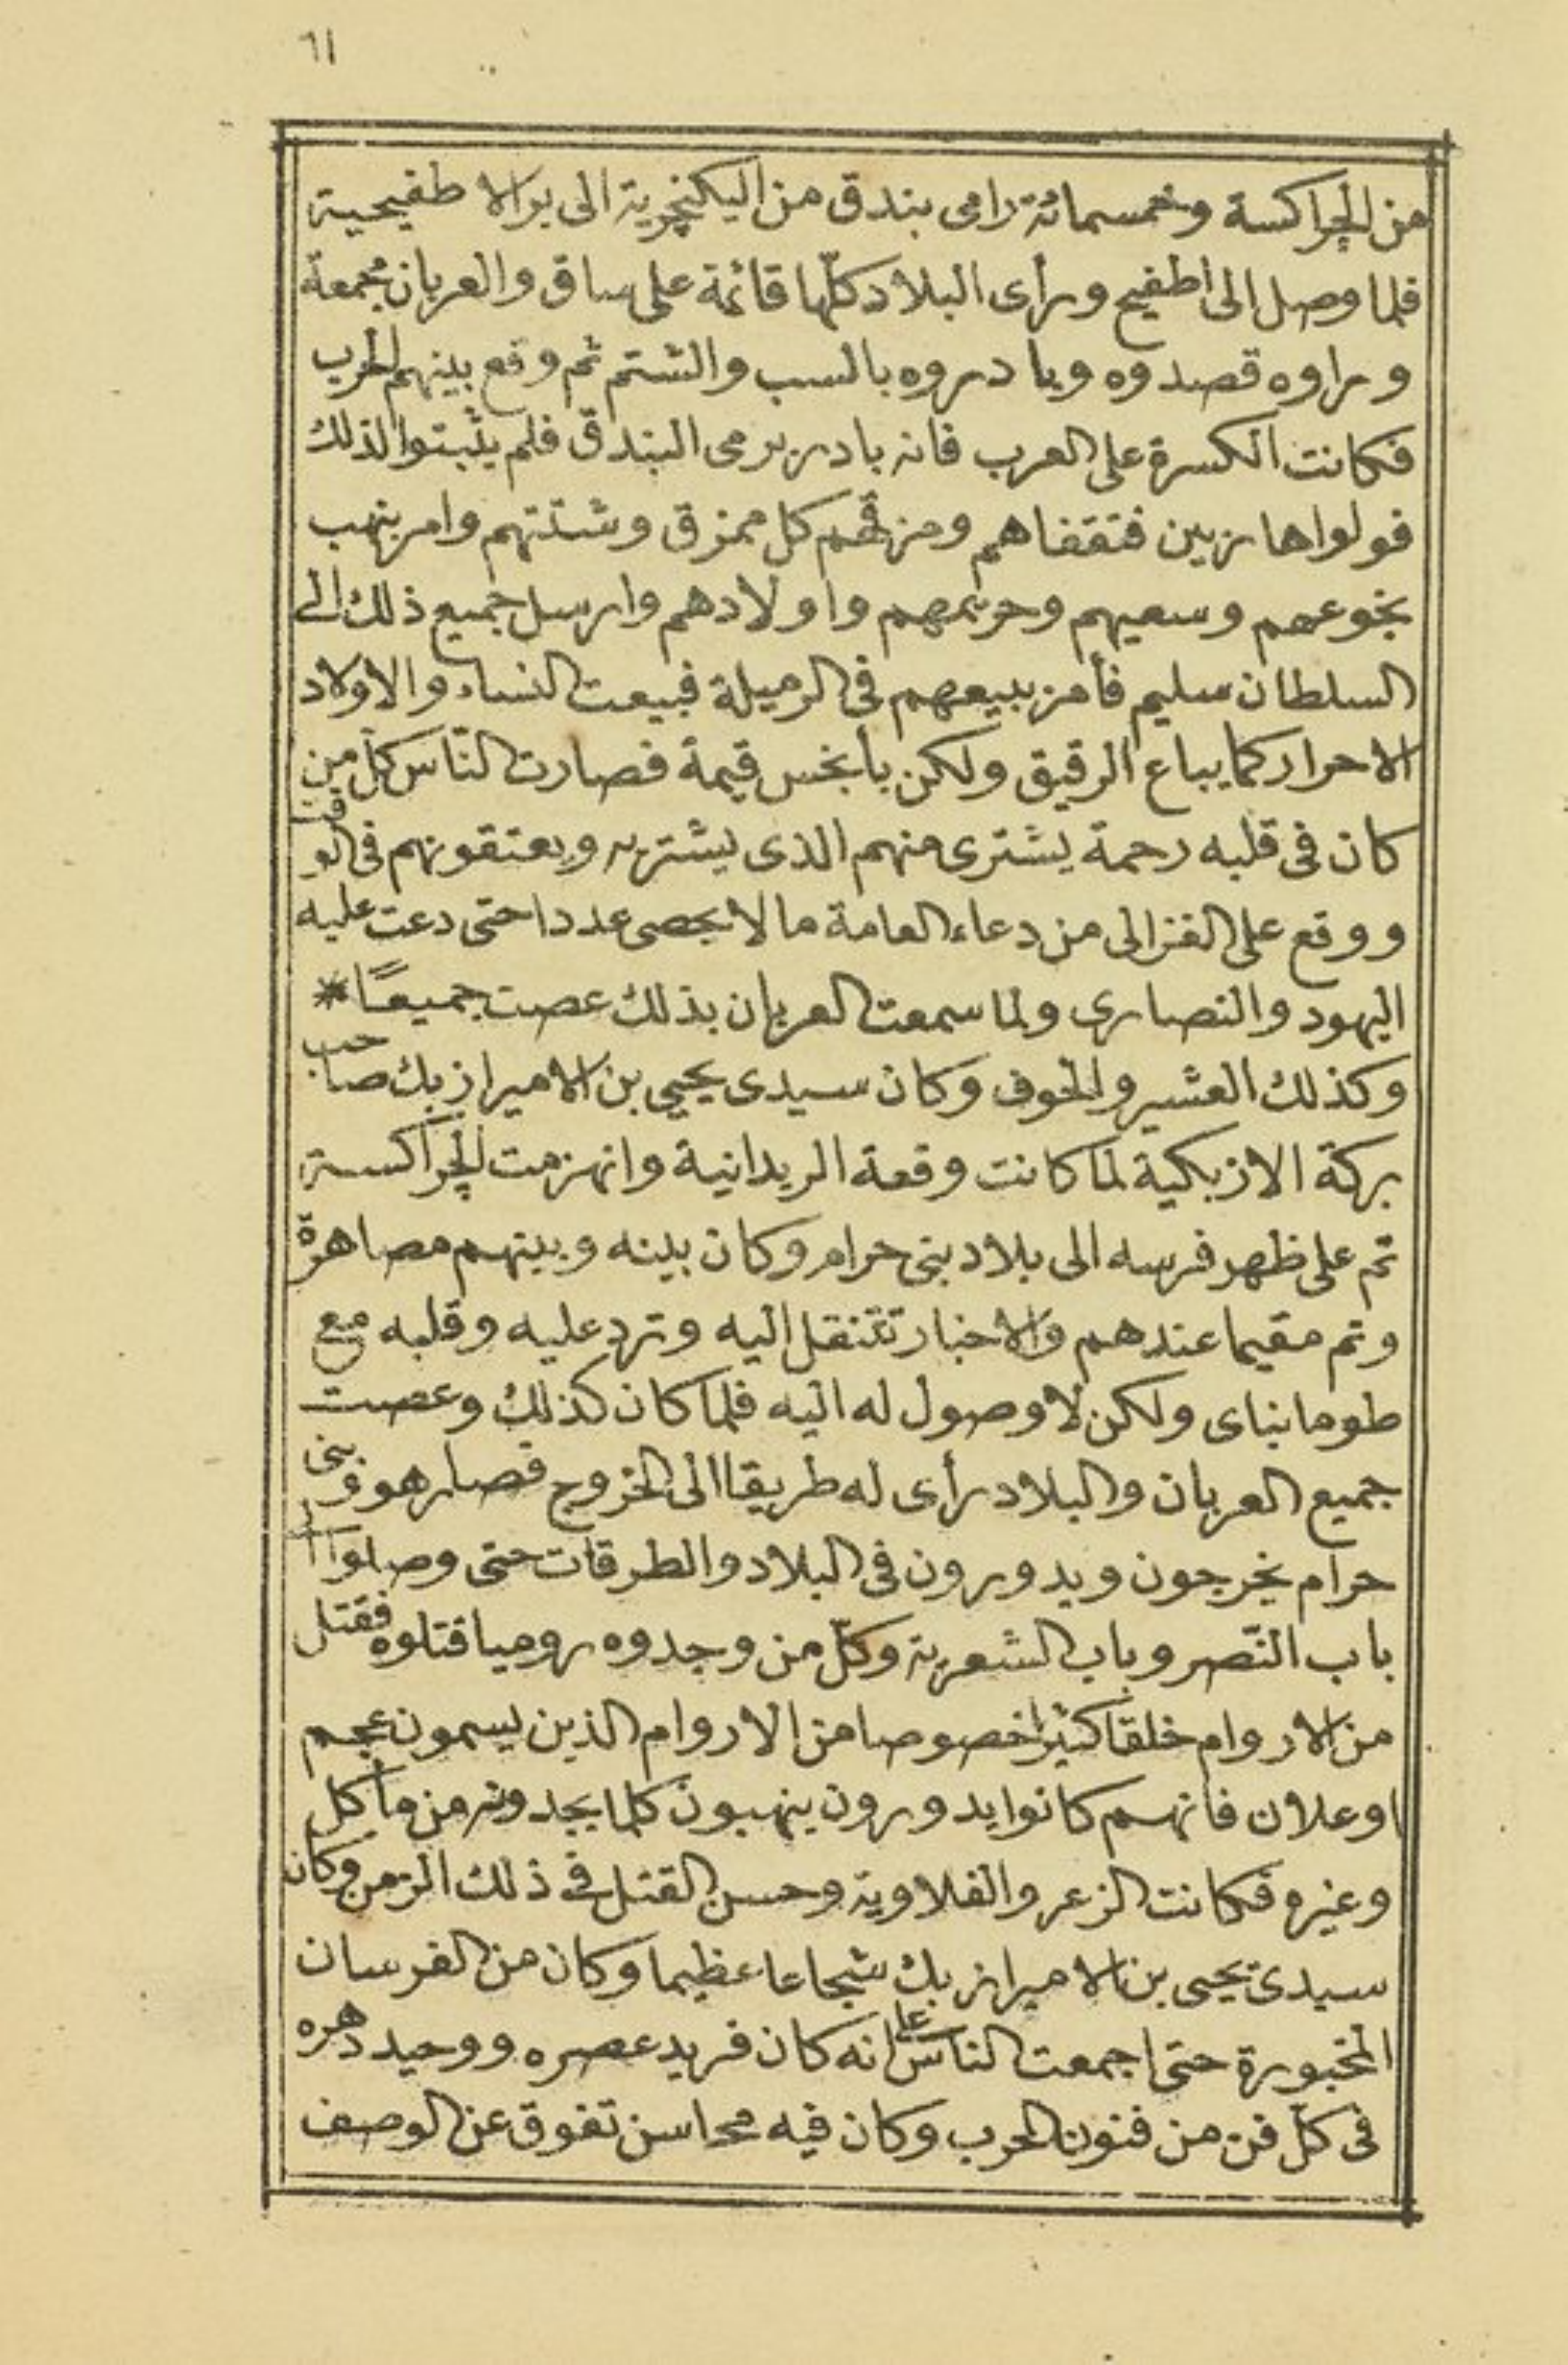 ٦١
من الجراكسة وخمسمائة رامى بندق من اليكنچرية الى بر الاطفيحية
فلما وصل الى اطفيح ورأى البلاد كلّها قائمة على ساق والعربان مجمعة
وراوه قصدوه وبادروه بالسب والشتم ثم وقع بينهم الحرب
فكانت الكسرة على العرب فانه بادر برمى البندق فلم يثبتوا لذلك
فولوا هاربين فتقفاهم ومزقهم كل ممزق وشتتهم وامر بنهب
نجوعهم وسعيهم وحريمهم واولادهم وارسل جميع ذلك الى
السلطان سليم فأمر ببيعهم فى الرميلة فبيعت النساء والاولاد
الاحرار كما يباع الرقيق ولكن بأبخس قيمة فصارت النّاس كل من
كان فى قلبه رحمة يشترى منهم الذى يشتريه ويعتقونهم فى الوقت
ووقع على الغزالى من دعاء العامة ما لا يحصى عددا حتى دعت عليه
اليهود والنصارى ولما سمعت العربان بذلك عصت جميعًا *
وكذلك العشير والخوف وكان سيدى يحيى بن الامير ازبك صاحب
بركة الازبكية لما كانت وقعة الريدانية وانهزمت الجراكسة
تم على ظهر فرسه الى بلاد بنى حرام وكان بينه وبينهم مصاهرة
وتم مقيما عندهم والاخبار تتنقل اليه وترد عليه وقلبه مع
طومانباى ولكن لا وصول له اليه فلما كان كذلك وعصت
جميع العربان والبلاد رأى له طريقا الى الخروج فصار هو وبنى
حرام يخرجون ويدورون فى البلاد والطرقات حتى وصلوا الى
باب النّصر وباب الشعرية وكلّ من وجدوه روميا قتلوه فقتل
من الاروام خلقا كثيرا خصوصا من الاروام الذين يسمون عجم
اوعلان فانهم كانوا يدورون ينهبون كلما يجدونه من مأكل
وغيره فكانت الزعر والفلاوية وحسن القتل فى ذلك الزمن وكان
سيدى يحيى بن الامير ازبك شجاعا عظيما وكان من الفرسان
المخبورة حتى اجمعت الناس على انه كان فريد عصره ووحيد دهره
فى كلّ فن من فنون الحرب وكان فيه محاسن تفوق عن الوصف